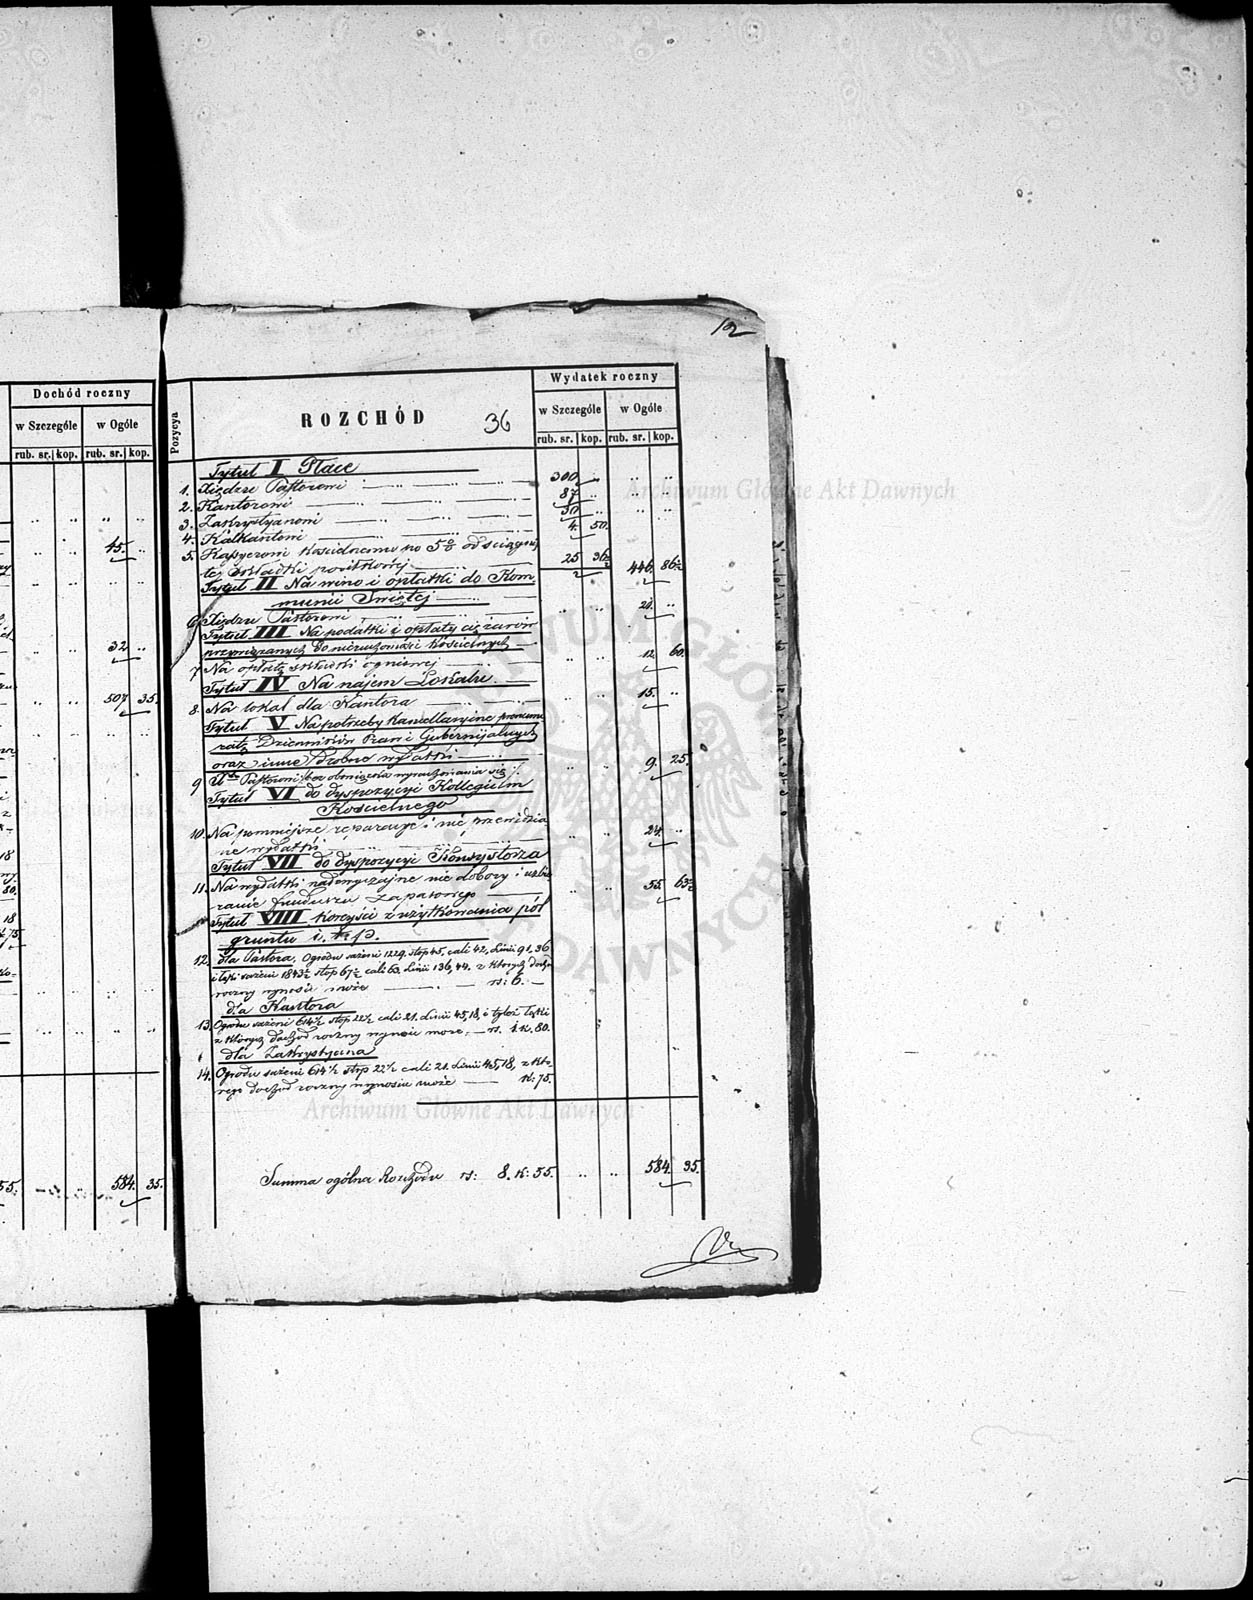 12
Dochód roczny
w Szczególe w Ogóle
rub. sr. kop. rub. sr. kop.
45.
32
507 35.
18
80.
18
55. 584. 35.
Pozycya
ROZCHÓD 36
Wydatek roczny
w Szczególe w Ogóle
rub. sr. kop. rub. sr. kop.
Tytuł I Płace
1. Xiędzu Pastorowi 300
2. Kantorowi 87
3. Zakrystyanowi 30
4. Kalkantowi 4. 50.
5. Kassyerowi Kościelnemu po 5% od ściągnię
tej składki posiłkowej 25 36½ 446. 86½
Tytuł II Na wino i opłatki do Kom
munii Świętej
6. Xiędzu Pastorowi 21.
Tytuł III Na podatki i opłaty ciężarów
przywiązanych do nieruchomości Kościelnych
7. Na opłatę składki ogniowej 12 60.
Tytuł IV Na najem Lokalu.
8. Na lokal dla Kantora 15.
Tytuł V Na potrzeby Kancellaryjne prenume
ratę Dzienników Praw i Gubernijalnych
oraz inne drobne wydatki
9 Pastorowi bez obowiązku wyrachowania się 9. 25.
Tytuł VI do dyspozycyi Kollegium
Kościelnego
10. Na pomniejsze reparacye i nie przewidzia
ne wydatki 24.
Tytuł VII do dyspozycyi Konsystorza
11. Na wydatki nadzwyczajne nie dobory i uzbie
ranie funduszu zapasowego 55. 63½
Tytuł VIII korzyści z użytkowania pól
gruntu i. t. p.
12. dla Pastora, Ogrodu sążeni 1229. stop 45, cali 42, Linii 91,36
i łąki sążeni 1843½ stop 67½ cali 63. Linii 136,44. z których dochód
roczny wynosić może rs: 6.
dla Kantora
13. Ogrodu sążeni 614½ stop 22½ cali 21. Linii 45,18, i tyleż łąki
z których dochód roczny wynosić może, rs. 1. k. 80.
dla Zakrystyana
14. Ogrodu sążeni 614½ stop 22½ cali 21. Linii 45,18, z któ-
rego dochód roczny wynosić może k: 75.
Summa ogólna Rozchodu rs: 8. k: 55. 584. 35.
Archiwum Główne Akt Dawnych
Archiwum Główne Akt Dawnych